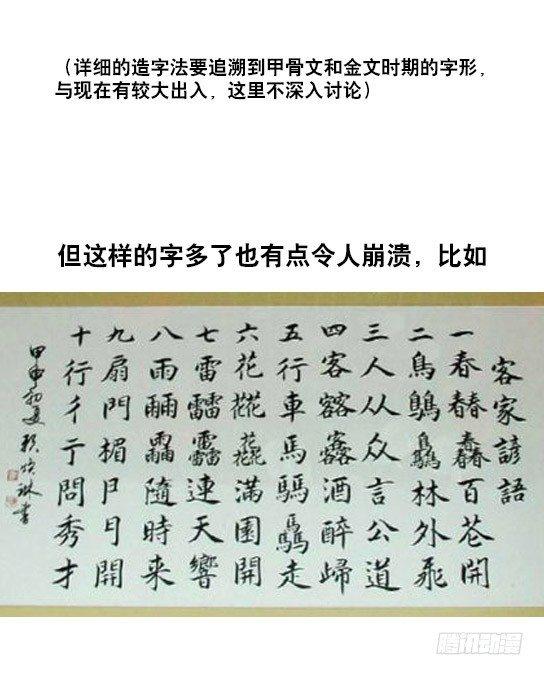 （详细的造字法要追溯到甲骨文和金文时期的字形，
与现在有较大出入，这里不深入讨论）
但这样的字多了也有点令人崩溃，比如
客家諺語
一春百花開
二鳥林外飛
三人从众言公道
四客酒醉歸
五行車馬驫走
六花滿園開
七雷連天響
八雨隨時来
九扇門楣開
十行彳亍問秀才
甲申初夏 書
腾讯动漫